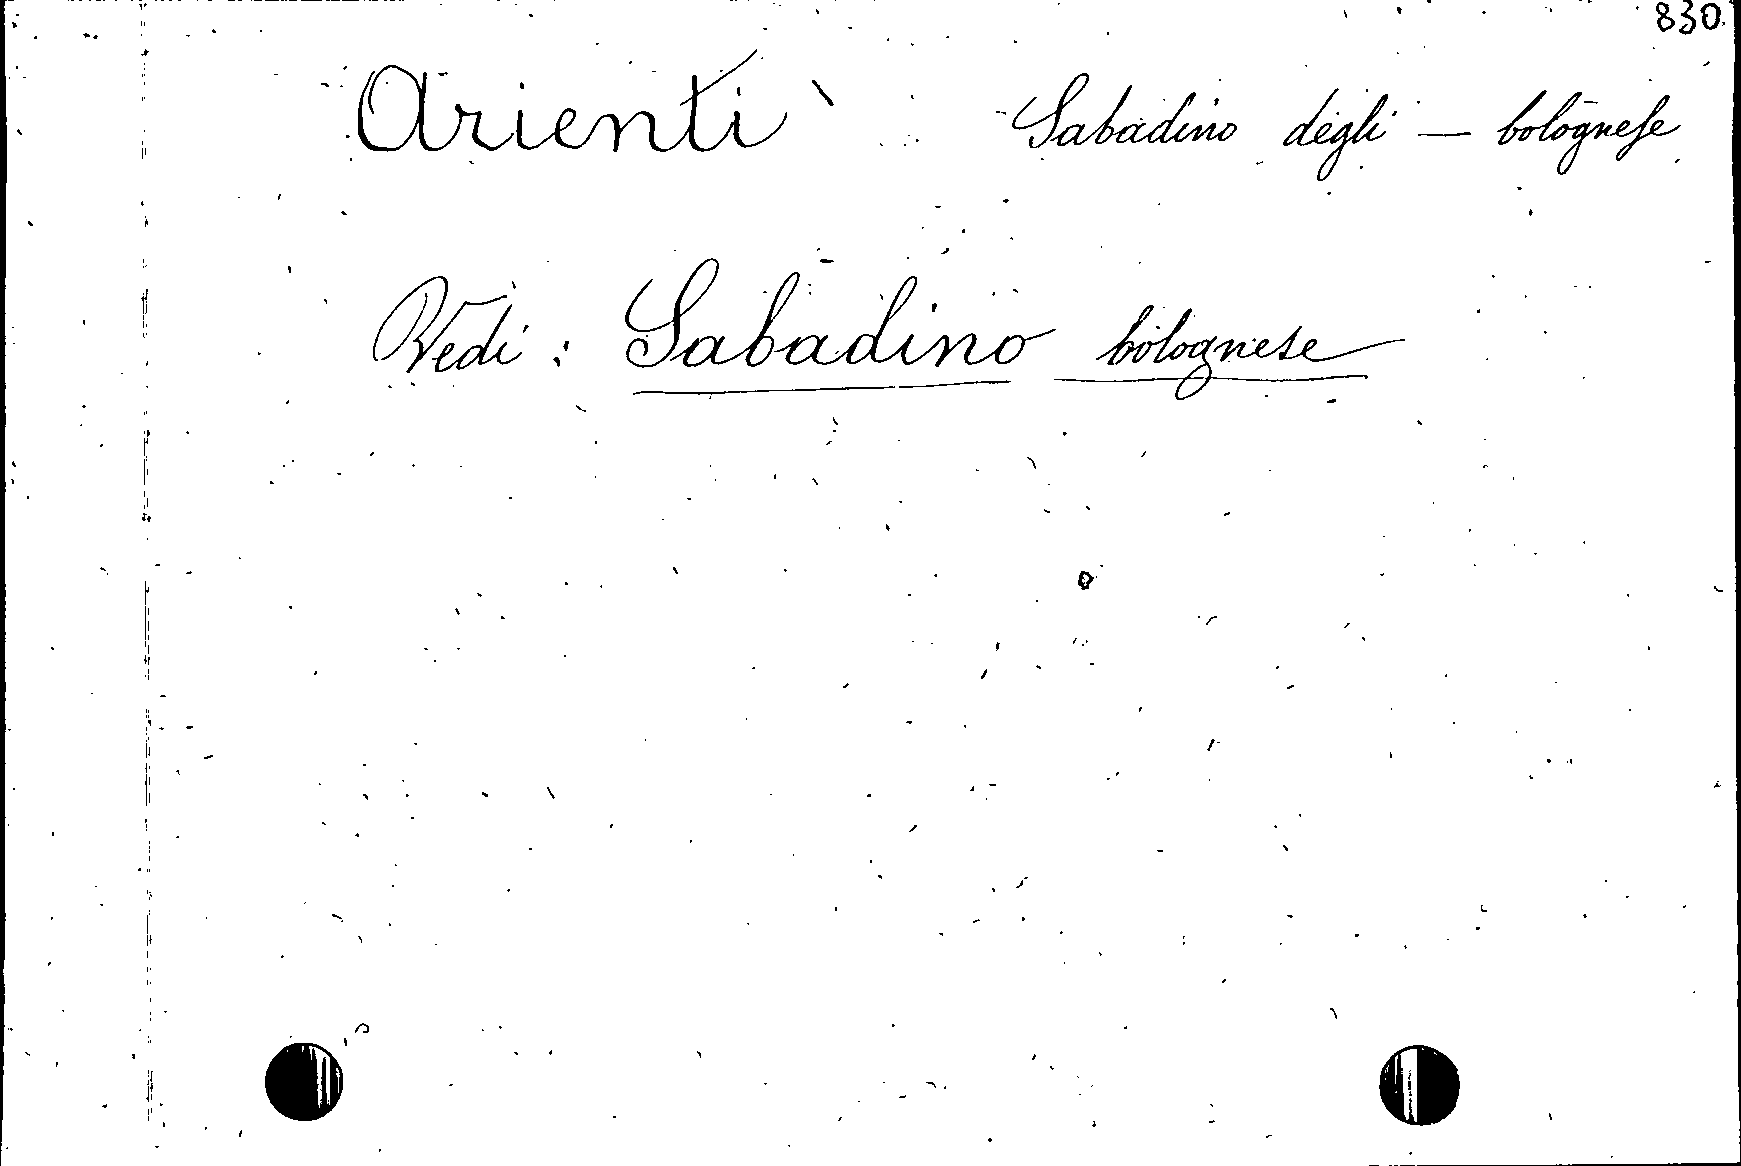 830
Arienti Sabadino degli — bolognese
Vedi: Sabadino bolognese